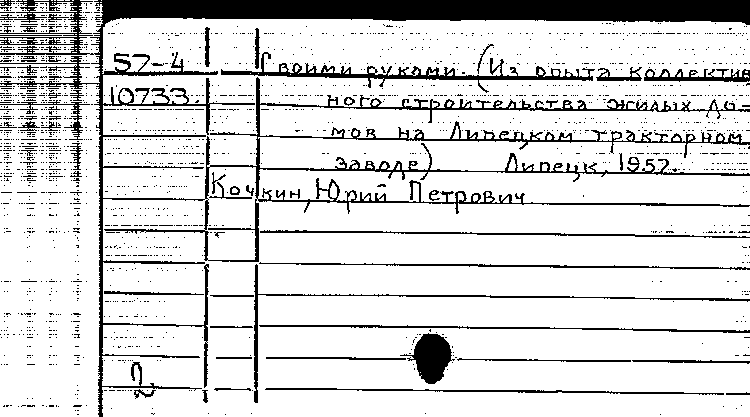 57-4 Своими руками (Из опыта коллектив
10733. ного строительства жилых до-
мов на Липецком тракторном
заводе) Липецк, 1957.
Кочкин, Юрий Петрович
2